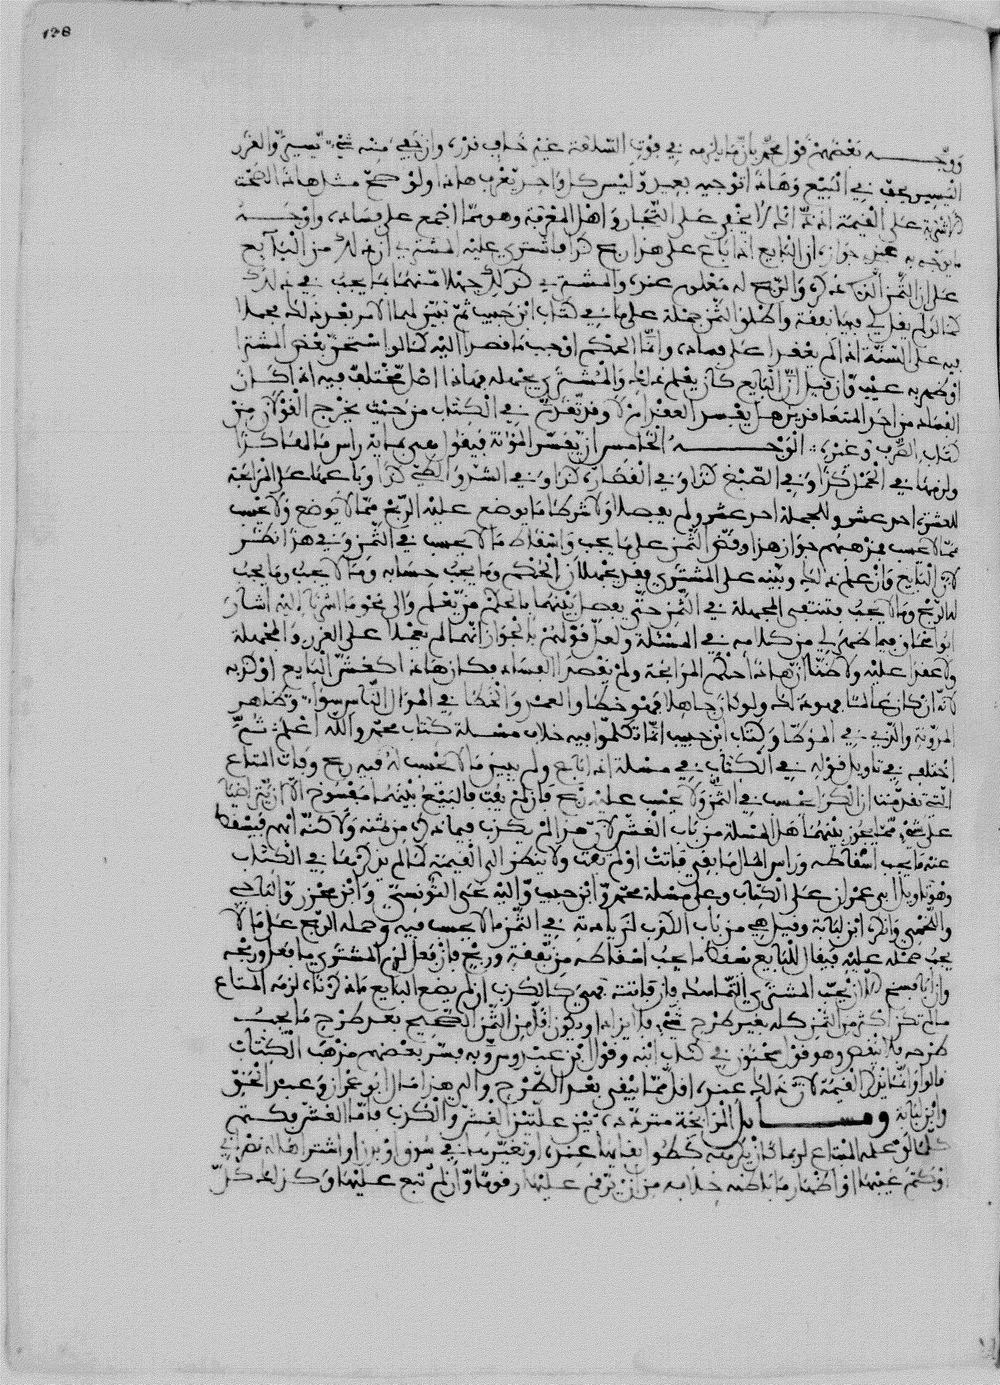 138
ووجه بعضهم قول محمد بان ما يلزمه في فوت السلعة غير خلاف قدر، وان خفي منه شيء يسير والغرر
اليسير يخف في البيع وهاذا توجيه بعيد وليس كل واحد يعرف هاذا ولو صح مثل هاذا لصحت
على القيمة اذ لا يخفى على التجار واهل المعرفة وهو مما اجمع على فساده، واوجه
ما يوجه به عندي جوازه ان البايع اذا باع على هذا ربح كذا فالمشتري عليه
على ان الثمن الذي ذكره والربح له معلوم عنده والمشتري كذلك جهلا منهما بما يجب في ذلك
كما لو لم يقل لي فيها نفقة واطلق الثمن جملة على ما في كتاب ابن حبيب ثم تبين لهما الامر بعد ذلك محملا
فيه على السنة اذا لم يعقدا على فساد، وانما الحكم اوجب ما قصرا اليه كما لو استحق بعض المشترا
او ظهر به عيب وان قيل ان البايع كان يعلم ذلك والمشتري يجهله فهاذا اصل مختلف فيه اذا كان
الفساد من احد المتعاقدين هل يفسد العقد ام لا وقد تقدم في الكتاب من حيث يخرج القولان من
كتاب الصرف وغيره، الوجه الخامس ان يفسر المؤنة فيقول هي بماية راس مالها كذا
ولزمها في الحمل كذا وفي الصبغ كذا وفي القصارة كذا وفي الشد والطي كذا وباعها على المرابحة
للعشرة احد عشر وللجملة احد عشر ولم يفصلا ولا شرطا ما يوضع عليه الربح مما لا يوضع ولا يحسب
مما لا يحسب فمذهبهم جواز هذا وفض الثمن على ما يجب واسقاط ما لا يحسب في الثمن وفي هذا نظر
لان البايع وان علم ذلك وبينه على المشتري فقد يجهلان الحكم وما يجب حسابه وما لا يجب وما يجب
له الربح وما لا يجب فتبقى الجملة في الثمن حتى يفصل بينهما بالحكم من يعلم والى نحو ما اشرنا اليه اشار
ابو اسحاق فيما ظهر لي من كلامه في المسئلة ولعل قولهم بالجواز انهما لم يعملا على الغرر والجملة
ولا عقدا عليه ولا ظنا ان هاذا حكم المرابحة ولم يقصدا الفساد فكان هاذا كغش البايع او كذبه
لانه ان كان عالما فهو ذلك ولو كان جاهلا فهو خطا والعمد والخطا في اموال الناس سواء وظاهر
المدونة والذي في الموطا وكتاب ابن حبيب انما تكلموا فيه خلاف مسئلة كتاب محمد والله اعلم ثم
اختلف في تاويل قوله في الكتاب في مسئلة اذا باع ولم يبين ما لا يحسب له فيه ربح وفات المتاع
التي تقدمت ان الكرا يحسب في الثمن ولا يحسب عليه ربح فان لم يفت فالبيع بينهما مفسوخ الا ان يتراضيا
على شيء مما يجوز بينهما هل المسئلة من باب الغش لان هذا لم يكذب فيما ذكره من ثمنه ولكنه ابهم فيسقط
عنه ما يجب اسقاطه وراس المال ما بقي فاتت او لم تفت ولا ينظر الى القيمة اذ لم يذكرها في الكتاب
وهو تاويل ابي عمران على الكتاب وعلى مسئلة محمد وابن حبيب واليه نحى التونسي وابن محرز والباجي
واللخمي وانكره ابن لبابة وقيل هي من باب الكذب لزيادته في الثمن ما لا يحسب فيه وحمله الربح على ما لا
يجب حمله عليه فيقال للبايع تسقط ما يجب اسقاطه من نفقة وربح فان فعل لزم المشتري ما فعل وربحه
وان ابا فسخ الا ان يحب المشتري التماسك فان فاتت فهي كالكذب ان لم يضع البايع ما ذكرنا، لزمه المتاع
ما لم تكن اكثر من الثمن كله بغير طرح شيء، فلا يزاد او يكون اقل من الثمن الصحيح بعد طرح ما يجب
طرحه فلا ينقص وهو قول سحنون في كتاب ابنه وقول ابن عبدوس وبه فسر بعضهم مذهب الكتاب
قالوا وانما يذكر القيمة لان ذلك عنده، اقل مما يبقى بعد الطرح والى هذا مال ابو عمران وعبد الحق
وابن لبابة ومسايل المرابحة مترددة، بين علتين الغش والكذب فاما الغش فكتم
كلما لو علمه المبتاع لربما كان يكرهه كطول بقايها عنده، او تغيرها في سوق او بدن او اشتراها له نصراني
او كتم عيبها او اظهار ما باطنه خلافه من ان يرقم عليها رقوما وان لم تبع عليها وكذلك كل